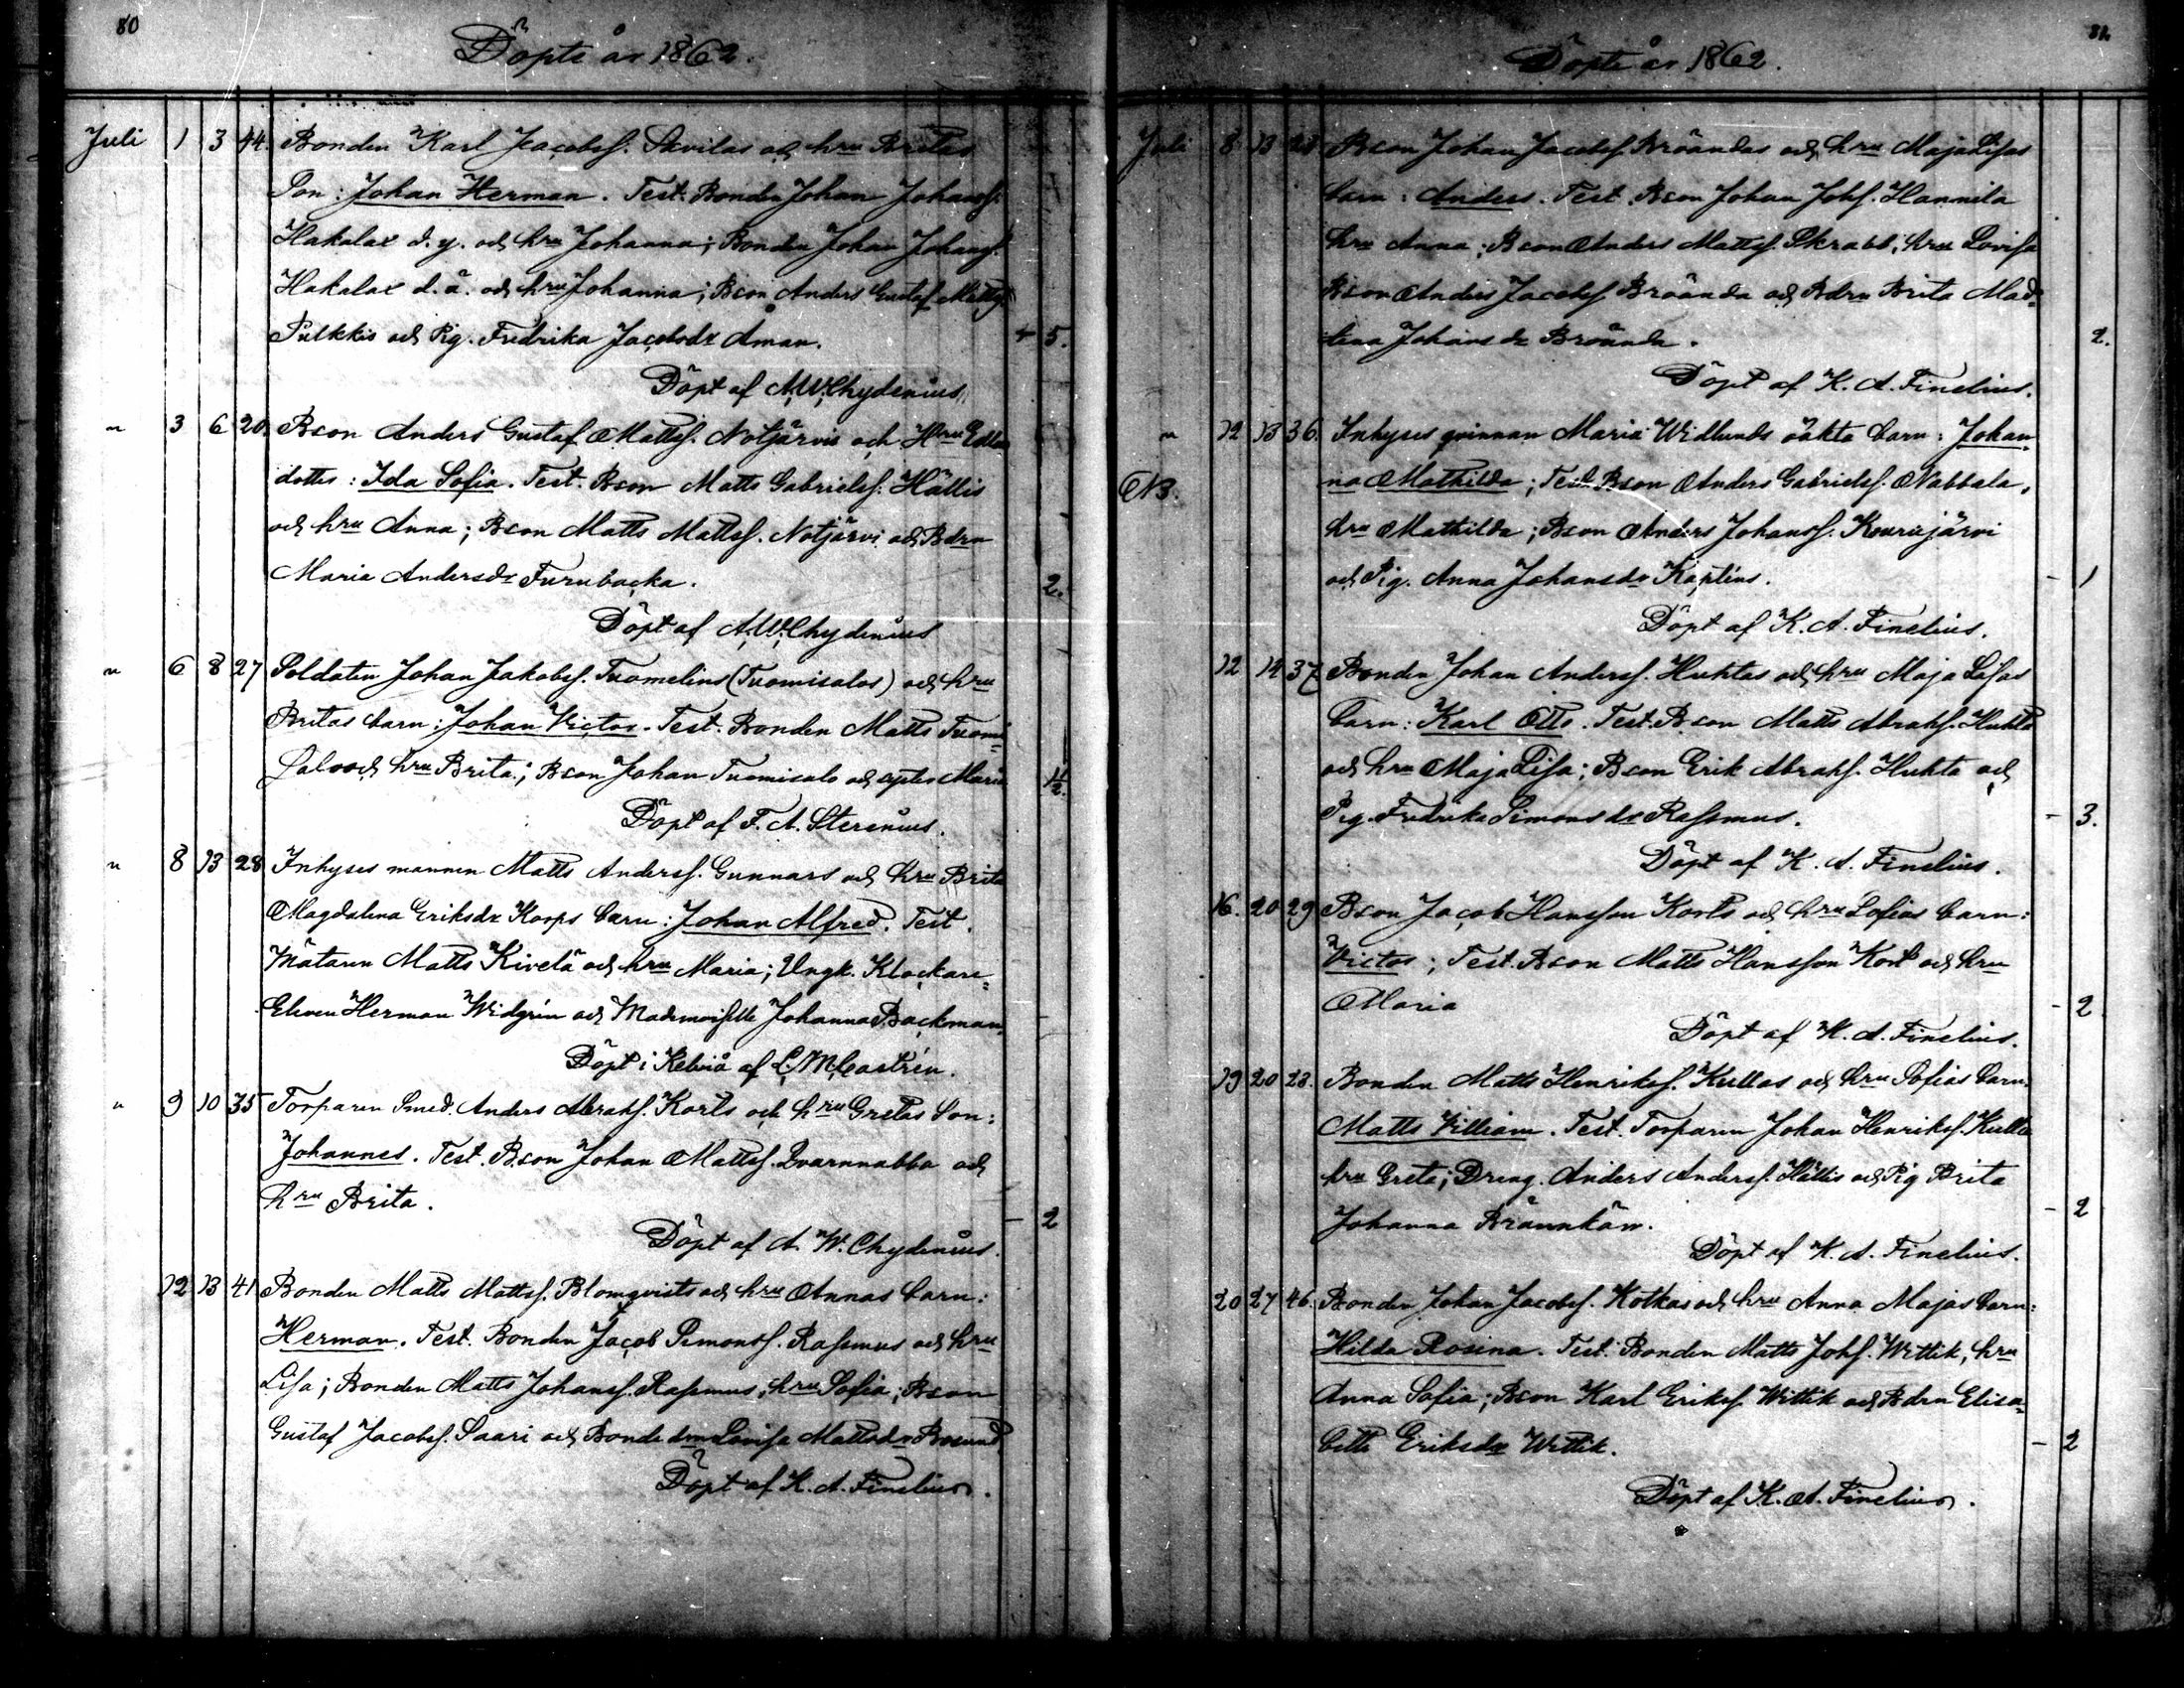 80
Döpte år 1862.
Juli 1 3 44. Bonden Karl Jacobsf. Savilas och hru Britas
Son: Johan Herman. Test. Bonden Johan Johansf.
Hakalax d.y. och hru Johanna; Bonden Johan Johansf.
Hakalax d.ä. och hru Johanna; Bson Anders Gustaf Mattsf.
Pulkkis och Pig. Fredrika Jacobsdr Åman. + 5.
Döpt af A.W.Chydenius.
" 3 6 20. Bson Anders Gustaf Mattsf. Notjärvis och Hru
dotter: Ida Sofia. Test. Bson Matts Gabrielsf. Hällis
och hru Anna; Bson Matts Mattsf. Notjärvi och Bdrn
Maria Andersdr Furubacka. 2.
Döpt af A.W.Chydenius
" 6 8 27 Soldaten Johan Jakobsf. Tuomelins (Tuomisalos) och hru
Britas barn: Johan Victor. Test. Bonden Matts Tuomi-
salo och hru Brita; Bson Johan Tuomisalo och syster Maria 1/2.
Döpt af F. A. Sterenius.
" 8 13 28 Inhyses mannen Matts Andersf. Gunnars och hru Brita
Magdalena Eriksdr Korps barn: Johan Alfred. Test.
Mätaren Matts Kivelä och hru Maria; Ungk. Klockare-
Eleven Herman Widgrén och Mademoiselle Johanna Backman.
Döpt i Kelviå af L.M.Castrén.
" 9 10 35 Torparen Smed. Anders Abrahf. Korts och hru Gretas Son:
Johannes. Test. Bson Johan Mattsf. Qvarnnabba och
hru Brita. - 2
Döpt af A. W. Chydenius.
12 13 41 Bonden Matts Mattsf. Blomqvists och hru Annas barn:
Herman. Test. Bonden Jacob Simonsf. Rasmus och hru
Lisa; Bonden Matts Johansf. Rasmus, hru Sofia; Bson
Gustaf Jacobsf. Saari och Bonde drn Lovisa Mattsdr Bosund
Döpt af K. A. Finelius.
81.
Döpte år 1862.
Juli 8 13 28 Bson Johan Jacobsf. Bröandas och hru Maja Lisas
barn: Anders. Test. Bson Johan Johsf. Hannila
hru Anna; Bson Anders Mattsf. Skrabb, hru Lovisa
Bson Anders Jacobsf. Bröanda och Bdrn Brita Mad-
lena Johansdr Bröanda. 2.
Döpt af K. A. Finelius.
" 12 13 36. Inhyses qvinnan Maria Widlunds oäkta barn: Johan-
NB. na Mathilda; Test. Bson Anders Gabrielsf. Nabbala,
hru Mathilda; Bson Anders Johansf. Kourujärvi
och Pig. Anna Johansdr Kaptens. - 1
Döpt af K. A. Finelius.
12 14 37 Bonden Johan Andersf. Huhtas och hru Maja Lisas
barn: Karl Otto. Test. Bson Matts Abrahf. Huhta
och hru Maja Lisa; Bson Erik Abrahf. Huhta och
Pig. Fredrika Simonsdr Rasmus. - 3.
Döpt af K. A. Finelius.
16. 20 29 Bson Jacob Hansson Korts och hru Sofias barn:
Victor; Test. Bson Matts Hansson Kort och hru
Maria - 2
Döpt af K. A. Finelius.
19 20 23. Bonden Matts Henriksf. Kullas och hru Sofias barn:
Matts Villiam. Test. Torparen Johan Henriksf. Kulla
hru Greta; Dreng. Anders Andersf. Hällis och Pig Brita
Johanna Brännkän. - 2
Döpt af K. A. Finelius.
20 27 46. Bonden Johan Jacobsf. Kotkas och hru Anna Majas barn:
Hilda Rosina. Test. Bonden Matts Johsf. Wittik, hru
Anna Sofia; Bson Karl Eriksf Wittik och Bdrn Elisa-
beth Eriksdr Wittik. - 2
Döpt af K. A. Finelius.